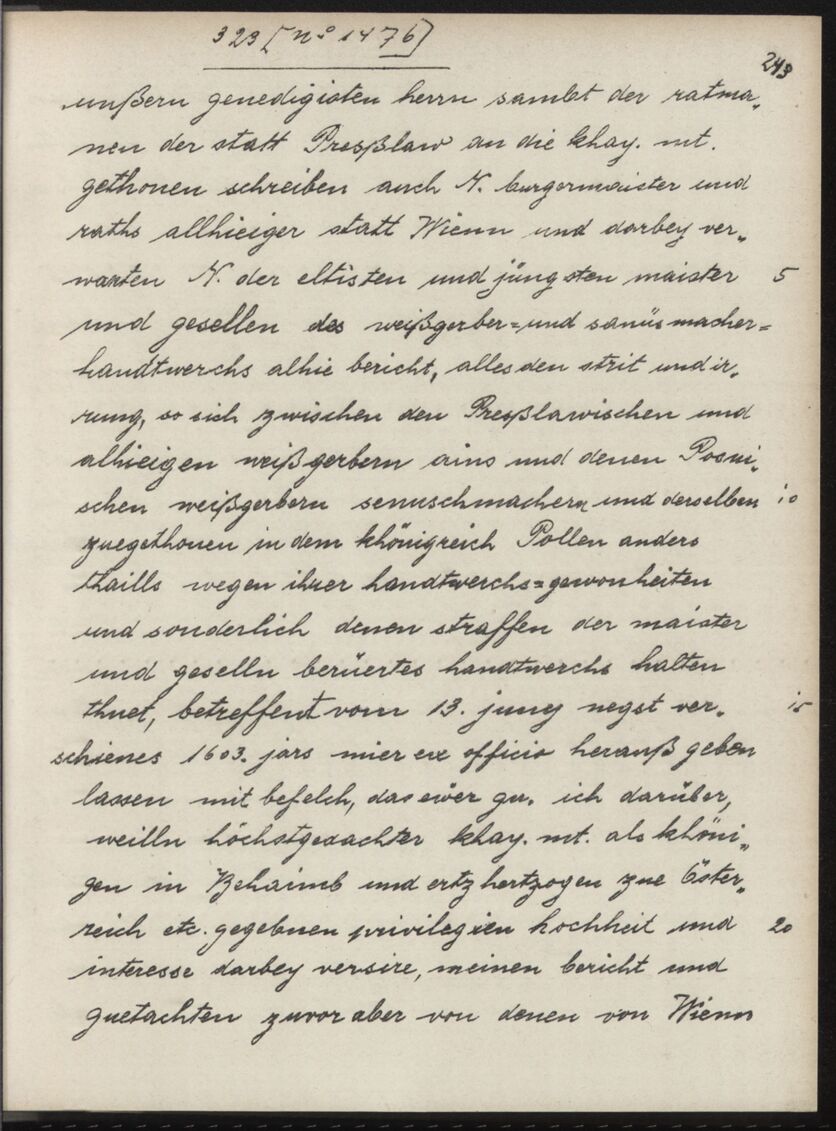 323 [No 1476]
243
unßern genedigisten herrn sambt der ratma„
nen der statt Presßlaw an die khay. mt.
gethonen schreiben auch N. burgermaister und
raths allhieiger statt Wienn und darbey ver„
wanten N. der eltisten und jüngsten maister 5
und gesellen des weißgerber= und sanüsmacher=
handtwerchs alhie bericht, alles den strit und ir„
rung, so sich zwischen den Presßlawischen und
alhieigen weißgerbern ains und denen Posni„
schen weißgerbern senuschmachern und derselben 10
zuegethonen in dem khönigreich Pollen anders
thaills wegen ihrer handtwerchs=gewonheiten
und sonderlich denen straffen der maister
und geselln berüertes handtwerchs halten
thuet, betreffent vom 13. juny negst ver„ 15
schienes 1603. jars mier ex officio herauß geben
lassen mit befelch, das eüer gn. ich darüber,
weilln höchstgedachter khay. mt. als khöni„
gen in Behaimb und ertzhertzogen zue Öster„
reich etc. gegebnen privilegien hochheit und 20
interesse darbey versire, meinen bericht und
guetachten zuvor aber von denen von Wienn